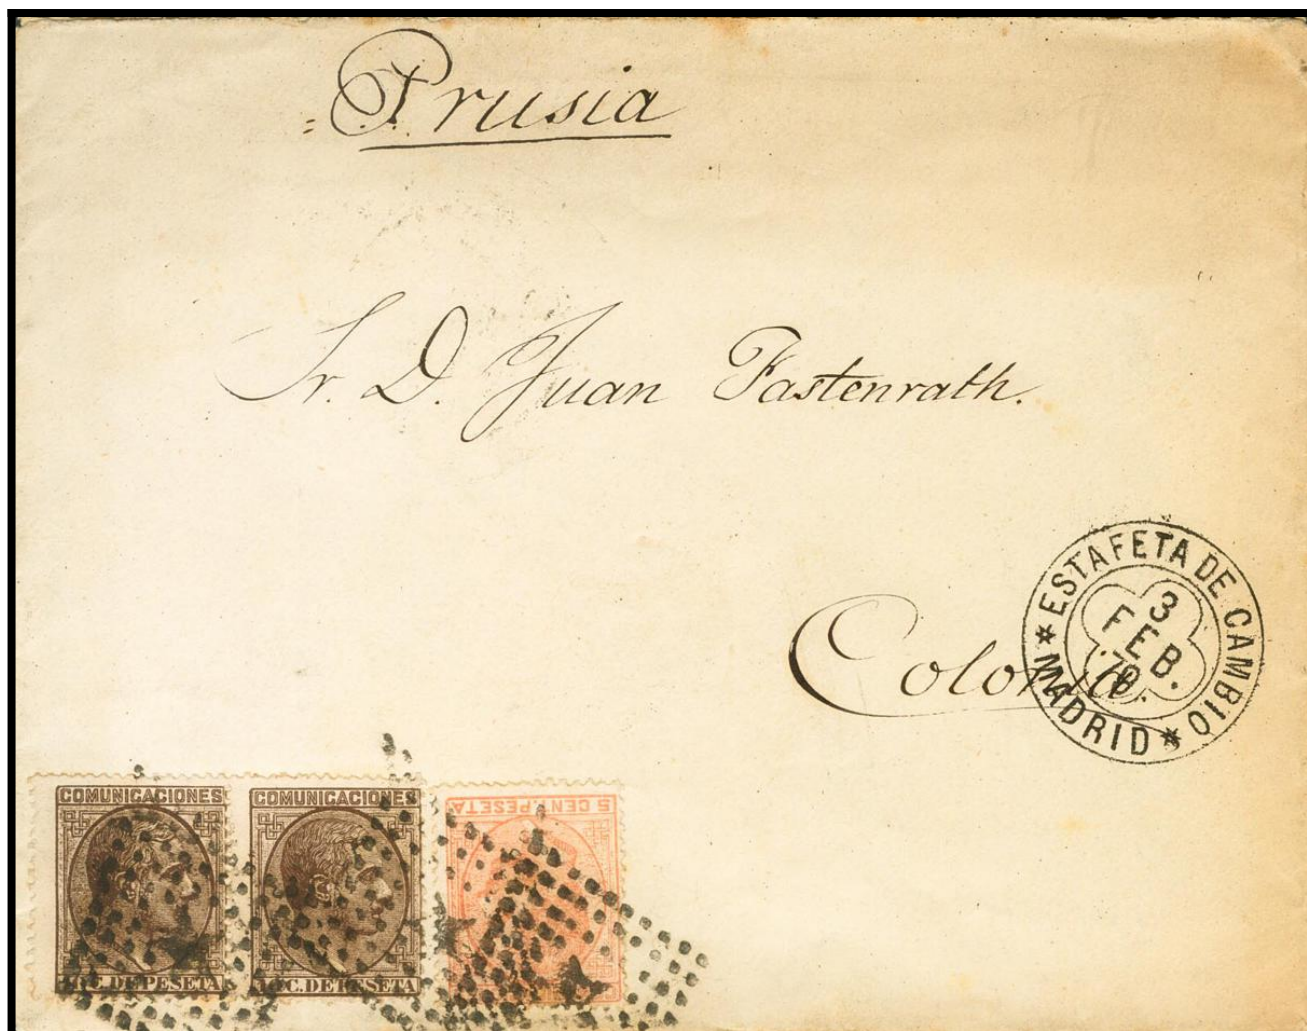 Prusia
Sr. D. Juan Fastenrath.
Colonia.
ESTAFETA DE CAMBIO
3
FEB.
79
* MADRID *
COMUNICACIONES
10 C. DE PESETA
COMUNICACIONES
10 C. DE PESETA
5 CENT. PESETA